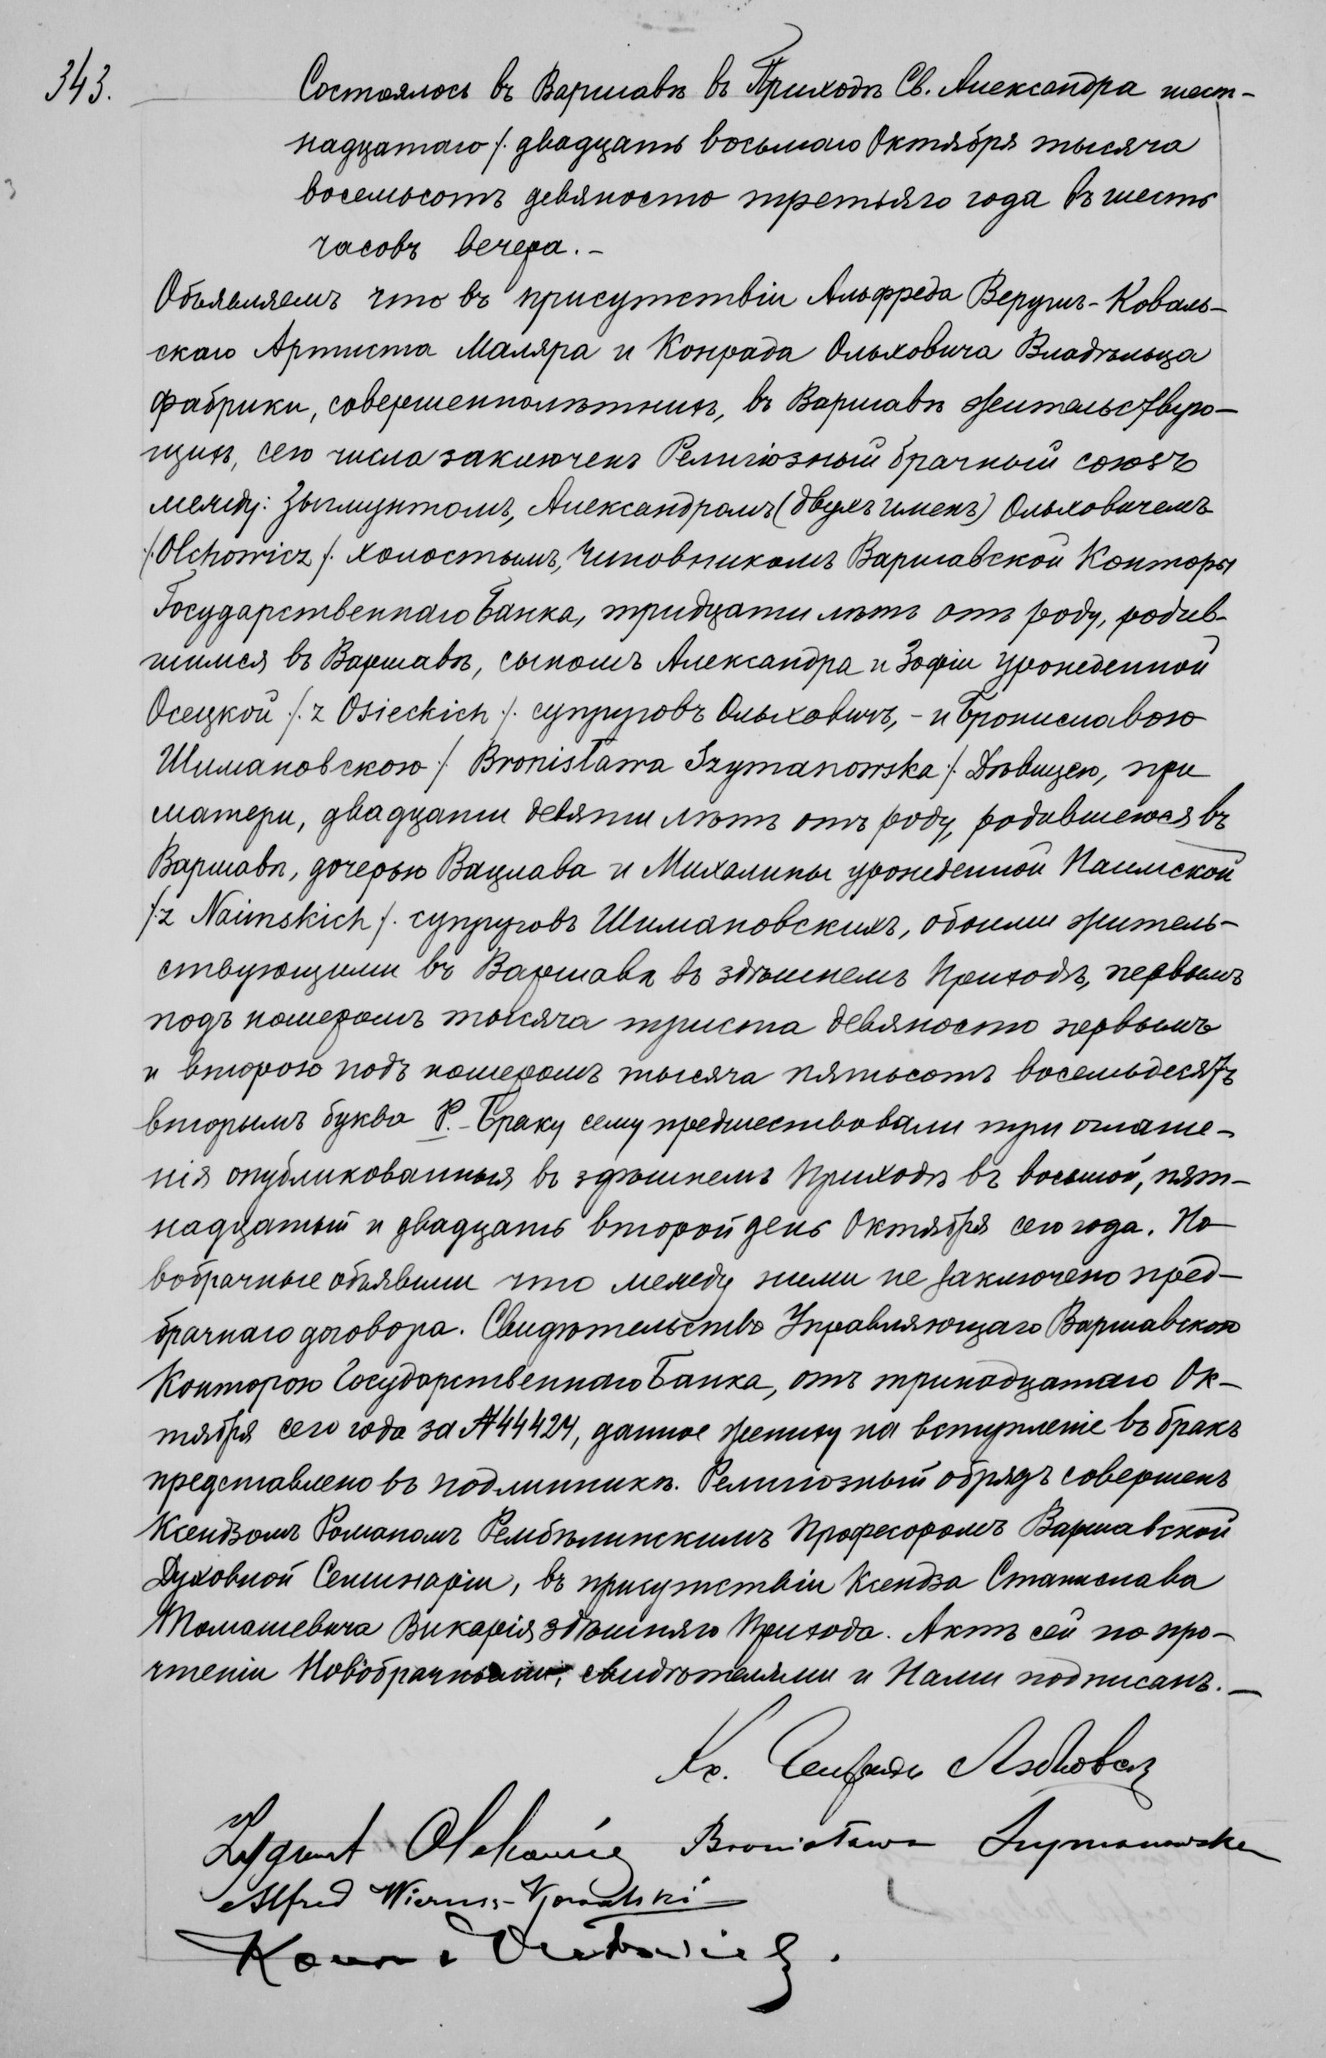 343.
Состоялось въ Варшавѣ въ Приходѣ Св. Александра шест-
надцатаго /. двадцать восьмаго Октября тысяча
восемьсотъ девяносто третьяго года въ шесть
часовъ вечера. -
Объявляемъ что въ присутствіи Альфреда Верушъ-Коваль-
скаго Артиста Маляра и Конрада Ольховича Владѣльца
фабрики, совершеннолѣтнихъ, въ Варшавѣ жительствую-
щихъ, сего числа заключенъ Религіозный брачный союзъ
между: Зыгмунтомъ, Александромъ (двухъ именъ) Ольховичемъ
/. Olchowicz /. холостымъ, Чиновникомъ Варшавской Конторы
Государственнаго Банка, тридцати лѣтъ отъ роду, родив-
шимся въ Варшавѣ, сыномъ Александра и Зофіи урожденной
Осецкой /. z Osieckich /. супруговъ Ольховичъ, - и Брониславою
Шимановскою /. Bronisława Szymanowska /. Дѣвицею, при
матери, двадцати девяти лѣтъ отъ роду, родившеюся въ
Варшавѣ, дочерью Вацлава и Михалины урожденной Наимской
/. z Naimskich /. супруговъ Шимановскихъ, обоими житель-
ствующими въ Варшавѣ въ здѣшнемъ Приходѣ, первымъ
подъ номеромъ тысяча триста девяносто первымъ
и второю подъ номеромъ тысяча пятьсотъ восемьдесятъ
вторымъ буква P. - Браку сему предшествовали три оглаше-
нія опубликованныя въ здѣшнемъ Приходѣ въ восьмой, пят-
надцатый и двадцать второй день Октября сего года. Но-
вобрачные объявили что между ними не заключено пред-
брачнаго договора. Свидѣтельство Управляющаго Варшавскою
Конторою Государственнаго Банка, отъ тринадцатаго Ок-
тября сего года за № 44424, данное жениху на вступленіе въ бракъ
представлено въ подлинникѣ. Религіозный обрядъ совершенъ
Ксендзомъ Романомъ Рембѣлинскимъ Професоромъ Варшавской
Духовной Семинаріи, въ присутствіи Ксендза Станислава
Томашевича Викарія здѣшняго Прихода. Актъ сей по про-
чтеніи Новобрачными, свидѣтелями и Нами подписанъ. -
Кс.
Zygmunt Olchowicz Bronisława Szymanowska
Alfred Wierusz-Kowalski
Konrad Olchowicz.